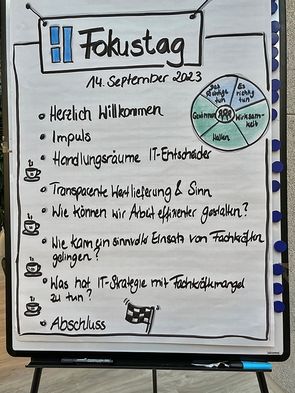 Fokustag
14. September 2023
Das Richtige tun
Es richtig tun
Gewinnen
Wirksam-
keit
Halten
Herzlich Willkommen
Impuls
Handlungsräume IT-Entscheider
Transparente Wertlieferung & Sinn
Wie können wir Arbeit effizienter gestalten?
Wie kann ein sinnvoller Einsatz von Fachkräften
gelingen?
Was hat IT-Strategie mit Fachkräftemangel
zu tun?
Abschluss